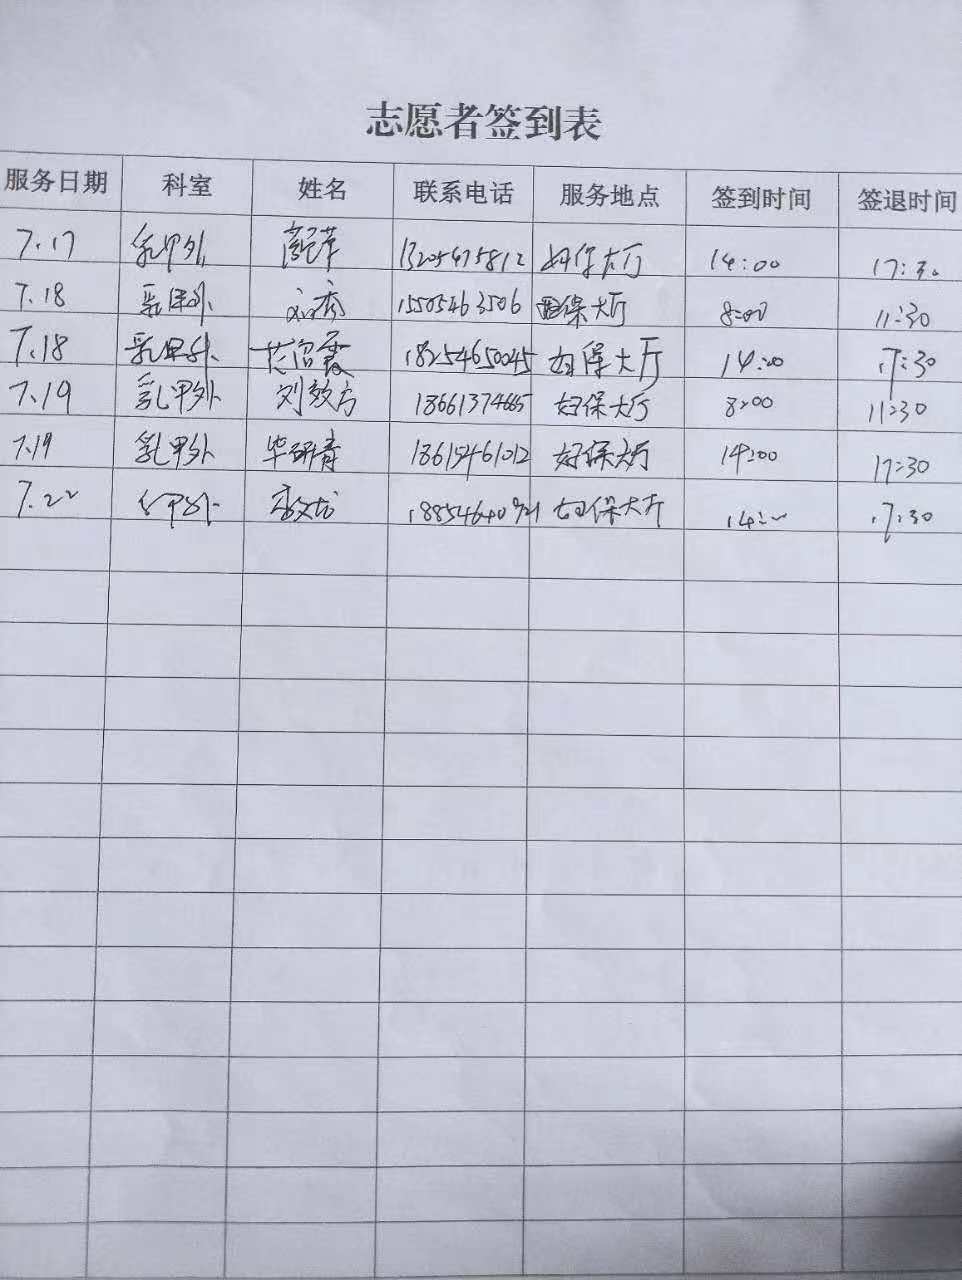 志愿者签到表
服务日期 科室 姓名 联系电话 服务地点 签到时间 签退时间
7.17 乳甲外 13205475812 妇保大厅 14:00 17:30
7.18 乳甲外 刘秀 15505463506 妇保大厅 8:00 11:30
7.18 乳甲外 18254650045 妇保大厅 14:00 17:30
7.19 乳甲外 刘效方 18661374665 妇保大厅 8:00 11:30
7.19 乳甲外 毕研青 18615461012 妇保大厅 14:00 17:30
7.22 乳甲外 18854640921 妇保大厅 14:00 17:30